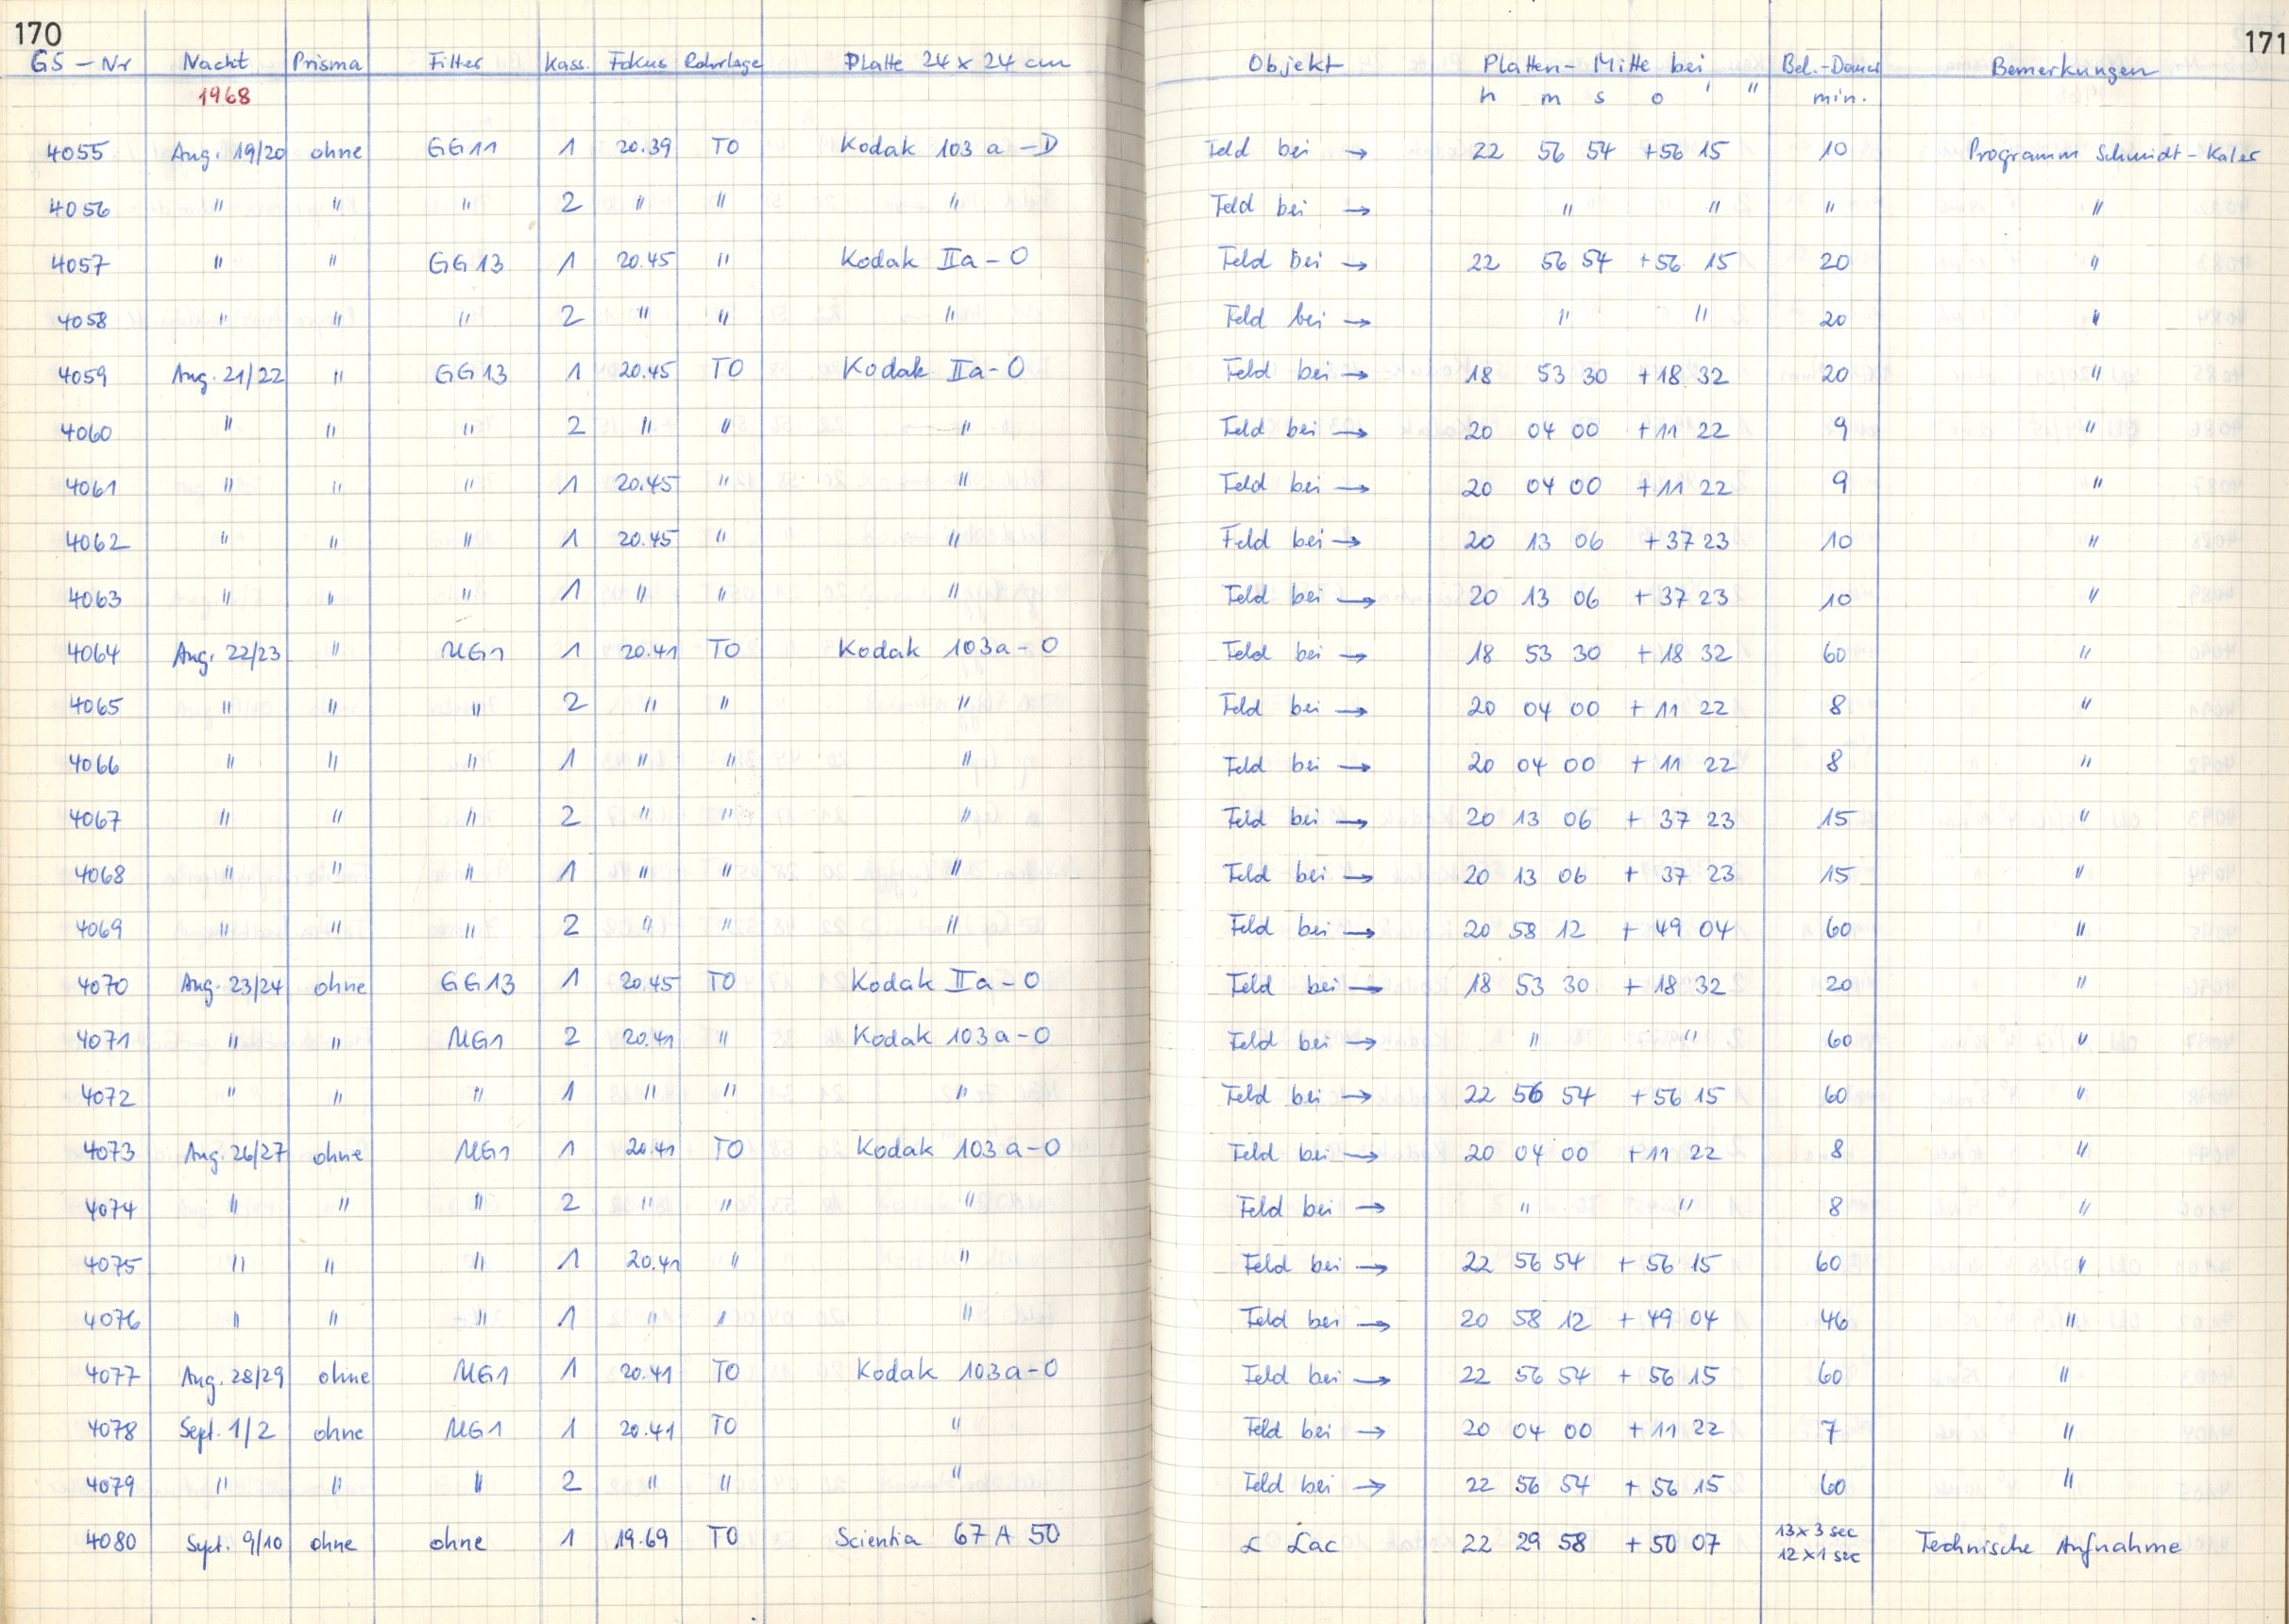 170
171
GS – Nr Nacht Prisma Filter Kass. Fokus Rohrlage Platte 24 x 24 cm Objekt Platten – Mitte bei Bel.-Dauer Bemerkungen
1968 h m s o ' " min.
4055 Aug. 19/20 ohne GG11 1 20.39 TO Kodak 103 a – D Feld bei → 22 56 54 +56 15 10 Programm Schmidt – Kaler
4056 " " " 2 " " " Feld bei → " " " "
4057 " " GG13 1 20.45 " Kodak IIa – O Feld bei → 22 56 54 +56 15 20 "
4058 " " " 2 " " " Feld bei → " " 20 "
4059 Aug. 21/22 " GG13 1 20.45 TO Kodak IIa – O Feld bei → 18 53 30 +18 32 20 "
4060 " " " 2 " " " Feld bei → 20 04 00 +11 22 9 "
4061 " " " 1 20.45 " " Feld bei → 20 04 00 +11 22 9 "
4062 " " " 1 20.45 " " Feld bei → 20 13 06 +37 23 10 "
4063 " " " 1 " " " Feld bei → 20 13 06 +37 23 10 "
4064 Aug. 22/23 " UG1 1 20.41 TO Kodak 103a – O Feld bei → 18 53 30 +18 32 60 "
4065 " " " 2 " " " Feld bei → 20 04 00 +11 22 8 "
4066 " " " 1 " " " Feld bei → 20 04 00 +11 22 8 "
4067 " " " 2 " " " Feld bei → 20 13 06 +37 23 15 "
4068 " " " 1 " " " Feld bei → 20 13 06 +37 23 15 "
4069 " " " 2 " " " Feld bei → 20 58 12 +49 04 60 "
4070 Aug. 23/24 ohne GG13 1 20.45 TO Kodak IIa – O Feld bei → 18 53 30 +18 32 20 "
4071 " " UG1 2 20.41 " Kodak 103a – O Feld bei → " " 60 "
4072 " " " 1 " " " Feld bei → 22 56 54 +56 15 60 "
4073 Aug. 26/27 ohne UG1 1 20.41 TO Kodak 103a – O Feld bei → 20 04 00 +11 22 8 "
4074 " " " 2 " " " Feld bei → " " 8 "
4075 " " " 1 20.41 " " Feld bei → 22 56 54 +56 15 60 "
4076 " " " 1 " " " Feld bei → 20 58 12 +49 04 46 "
4077 Aug. 28/29 ohne UG1 1 20.41 TO Kodak 103a – O Feld bei → 22 56 54 +56 15 60 "
4078 Sept. 1/2 ohne UG1 1 20.41 TO " Feld bei → 20 04 00 +11 22 7 "
4079 " " " 2 " " " Feld bei → 22 56 54 +56 15 60 "
4080 Sept. 9/10 ohne ohne 1 19.69 TO Scientia 67 A 50 α Lac 22 29 58 +50 07 13 x 3 sec 12 x 1 sec Technische Aufnahme